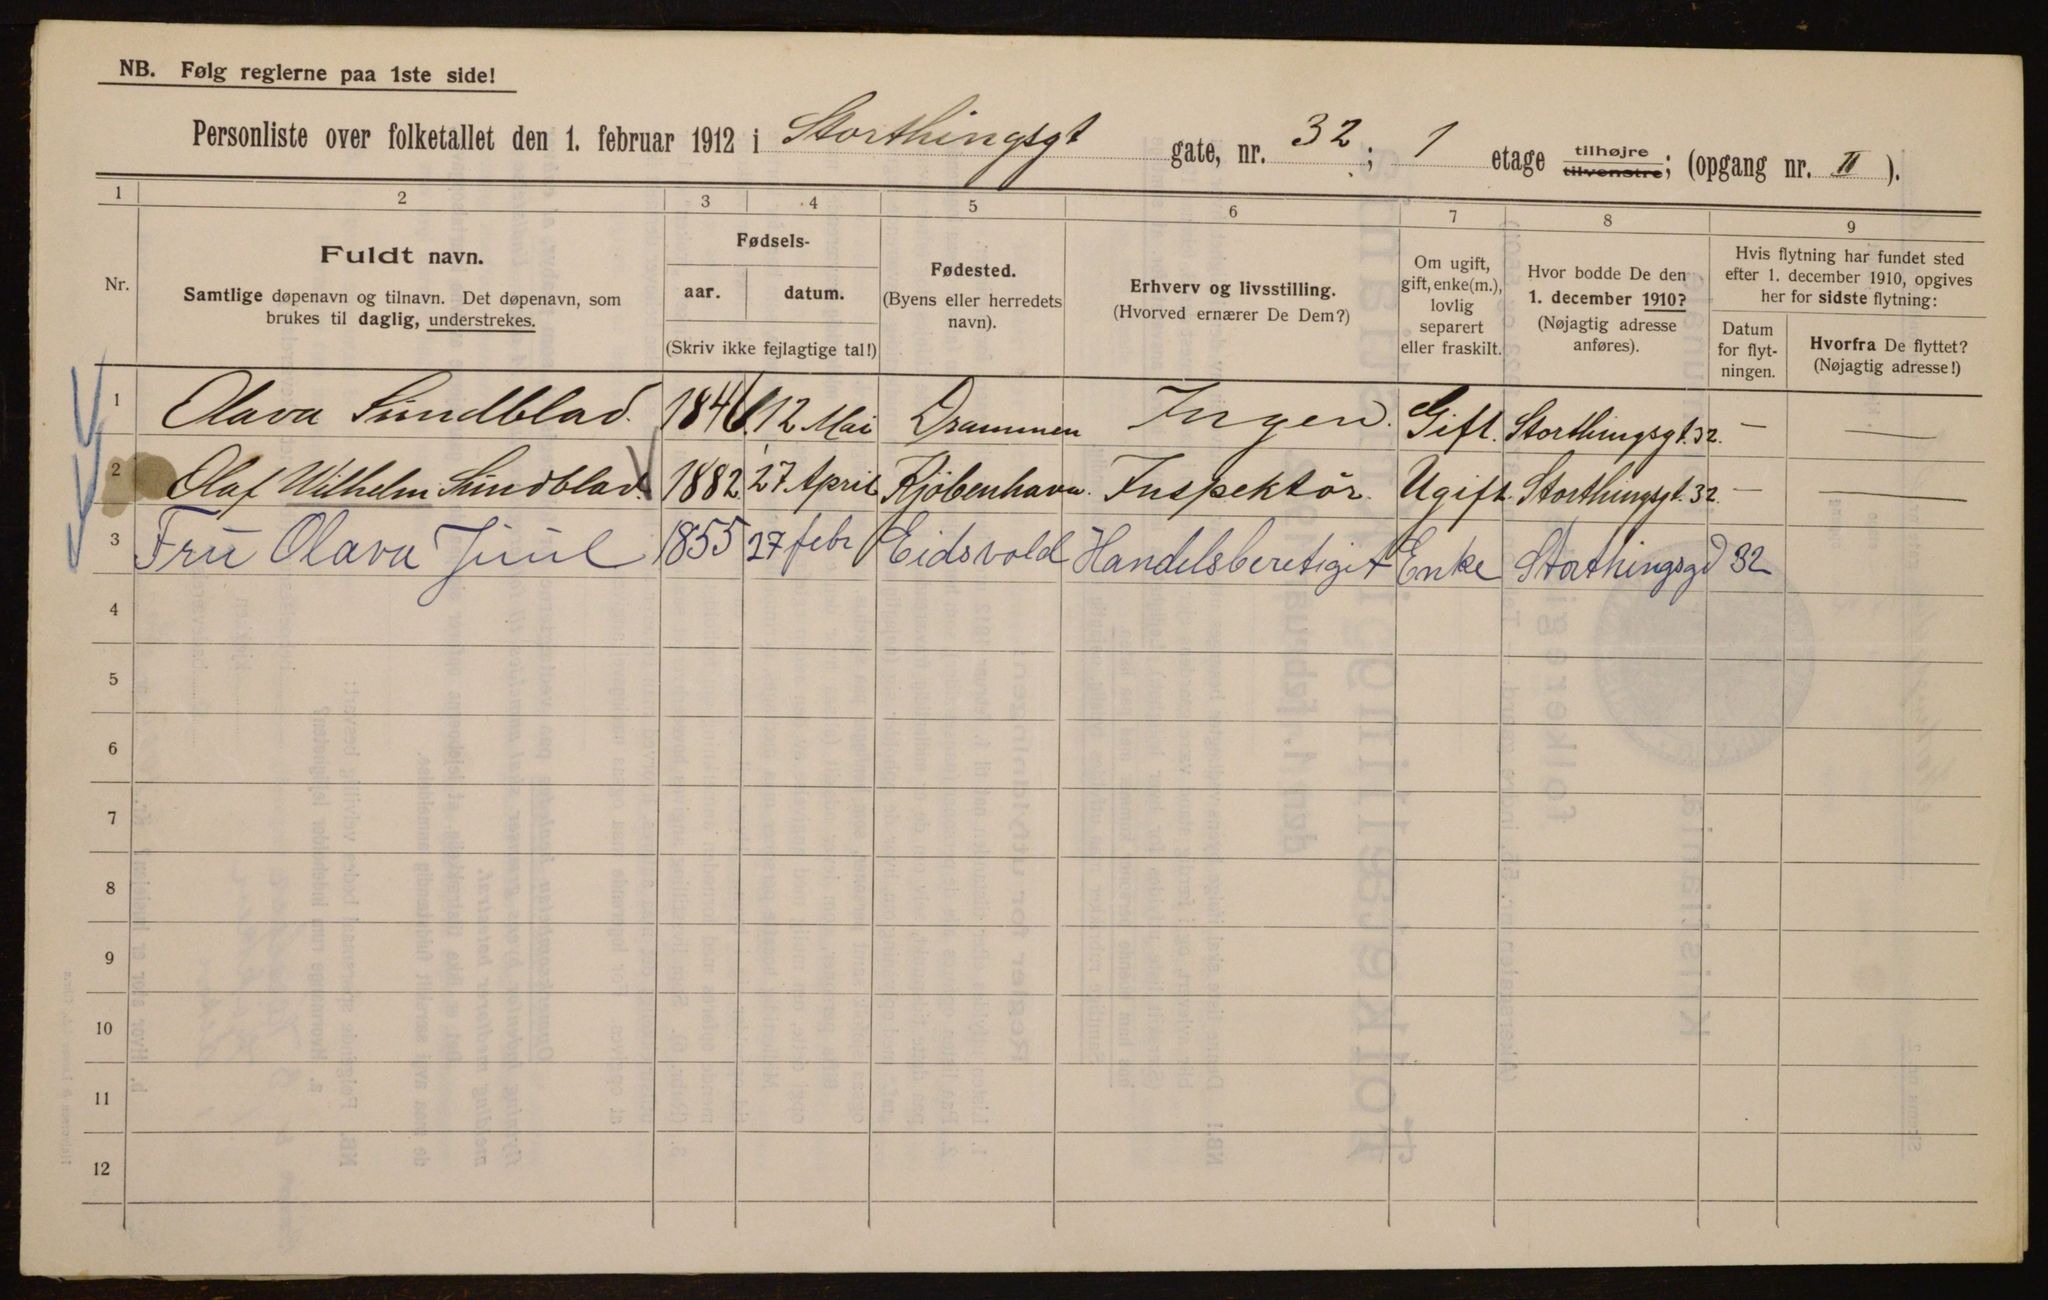 NB. Følg reglerne paa 1ste side!
Personliste over folketallet den 1. februar 1912 i Storthingsgt gate, nr. 32; 1 etage tilhøjre tilvenstre; (opgang nr. II).
1 2 3 4 5 6 7 8 9
Nr.
Fuldt navn.
Samtlige døpenavn og tilnavn. Det døpenavn, som
brukes til daglig, understrekes.
Fødsels-
aar. datum.
(Skriv ikke fejlagtige tal!)
Fødested.
(Byens eller herredets
navn).
Erhverv og livsstilling.
(Hvorved ernærer De Dem?)
Om ugift,
gift, enke(m.),
lovlig
separert
eller fraskilt.
Hvor bodde De den
1. december 1910?
(Nøjagtig adresse
anføres).
Hvis flytning har fundet sted
efter 1. december 1910, opgives
her for sidste flytning:
Datum
for flyt-
ningen.
Hvorfra De flyttet?
(Nøjagtig adresse!)
1 Olava Sundblad. 1846 12 Mai Drammen Ingen. Gift. Storthingsgt. 32. — —
2 Olaf Wilhelm Sundblad. 1882 27 April Kjöbenhavn. Inspektör. Ugift. Storthingsgt. 32. — —
3 Fru Olava Juul 1855 27 febr Eidsvold Handelsberetiget Enke Storthingsgd 32
4
5
6
7
8
9
10
11
12